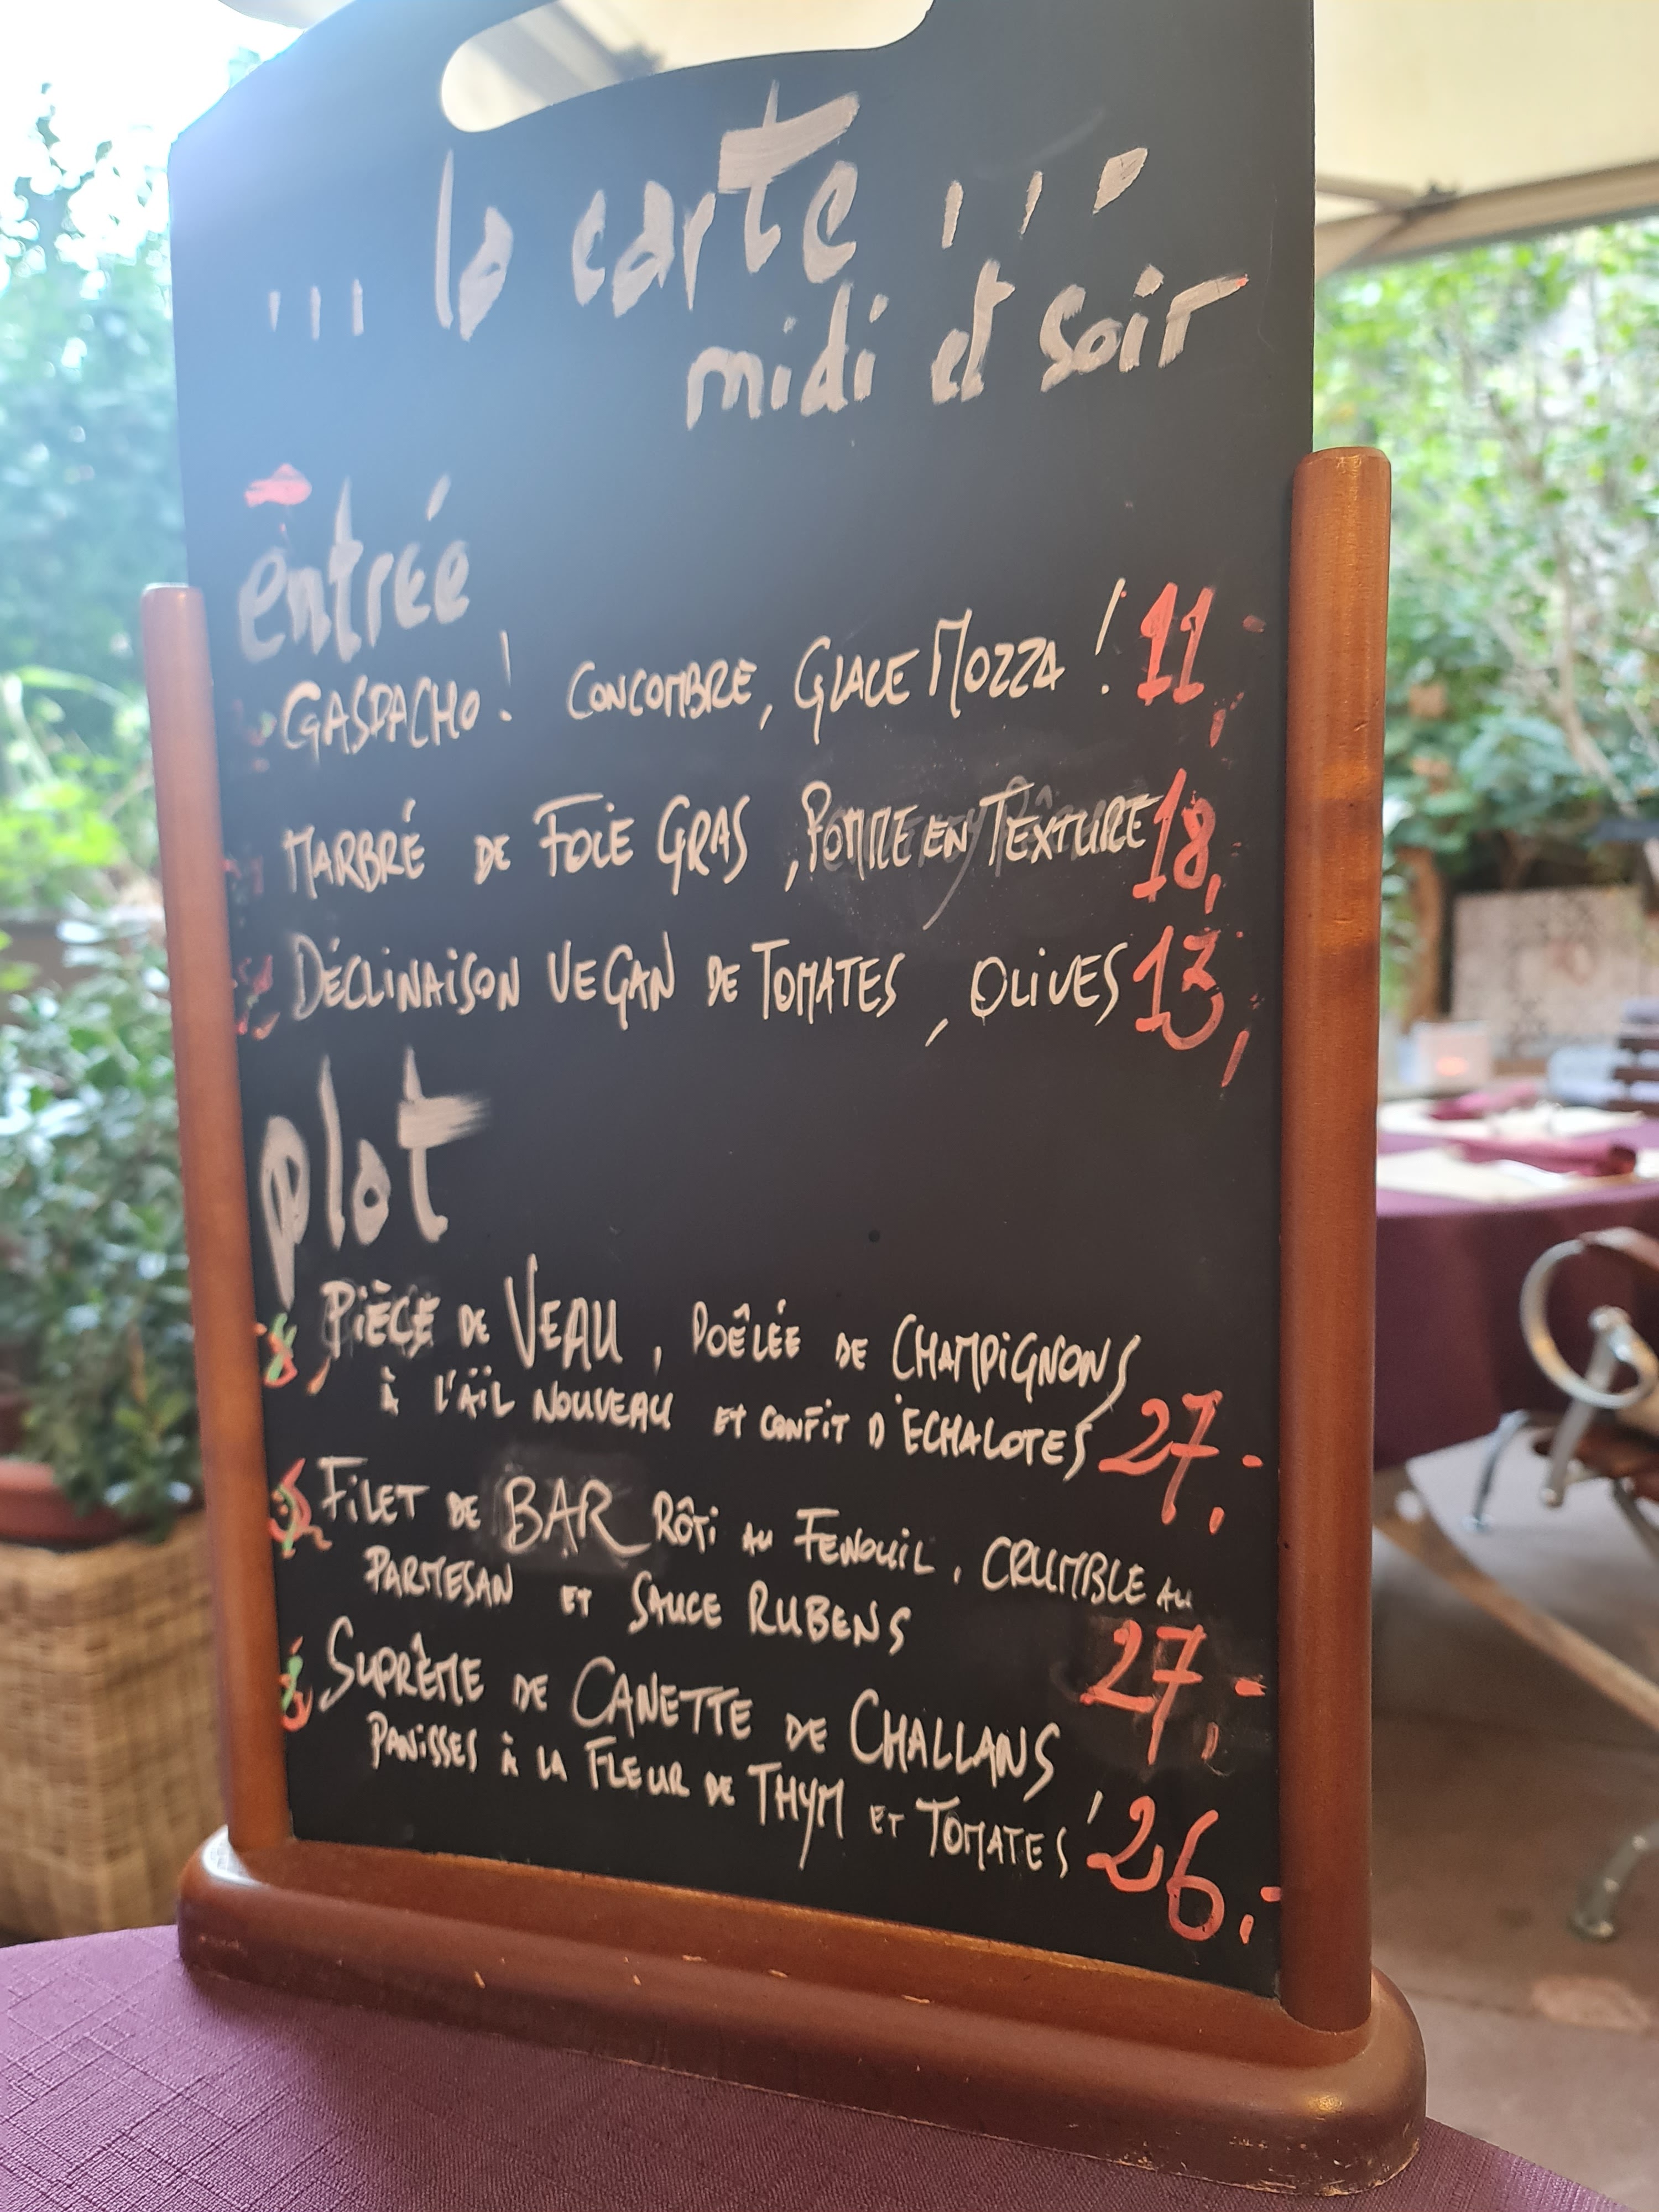 ... la carte ...
midi et soir
entrée
GASPACHO! CONCOMBRE, GLACE MOZZA! 11,-
MARBRÉ DE FOIE GRAS, POMME EN TEXTURE 18,-
DÉCLINAISON VEGAN DE TOMATES, OLIVES 13,-
plat
PIÈCE DE VEAU, POÊLÉE DE CHAMPIGNONS
À L'AIL NOUVEAU ET CONFIT D'ECHALOTES 27,-
FILET DE BAR RÔTI AU FENOUIL, CRUMBLE AU
PARMESAN ET SAUCE RUBENS 27,-
SUPRÊME DE CANETTE DE CHALLANS,
PANISSES À LA FLEUR DE THYM ET TOMATES 26,-